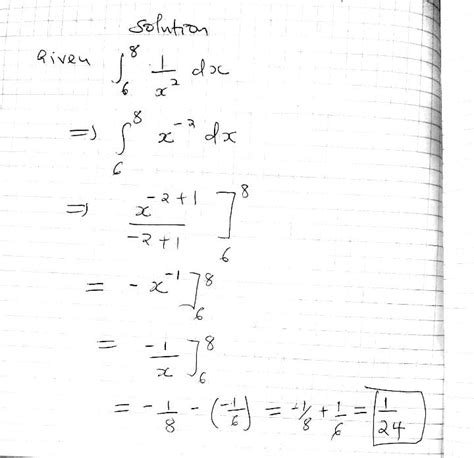 Solution
Given ∫₆⁸ 1/x² dx
⇒ ∫₆⁸ x⁻² dx
⇒ x⁻²⁺¹/-2+1 ]₆⁸
= - x⁻¹ ]₆⁸
= -1/x ]₆⁸
= - 1/8 - (-1/6) = -1/8 + 1/6 = 1/24